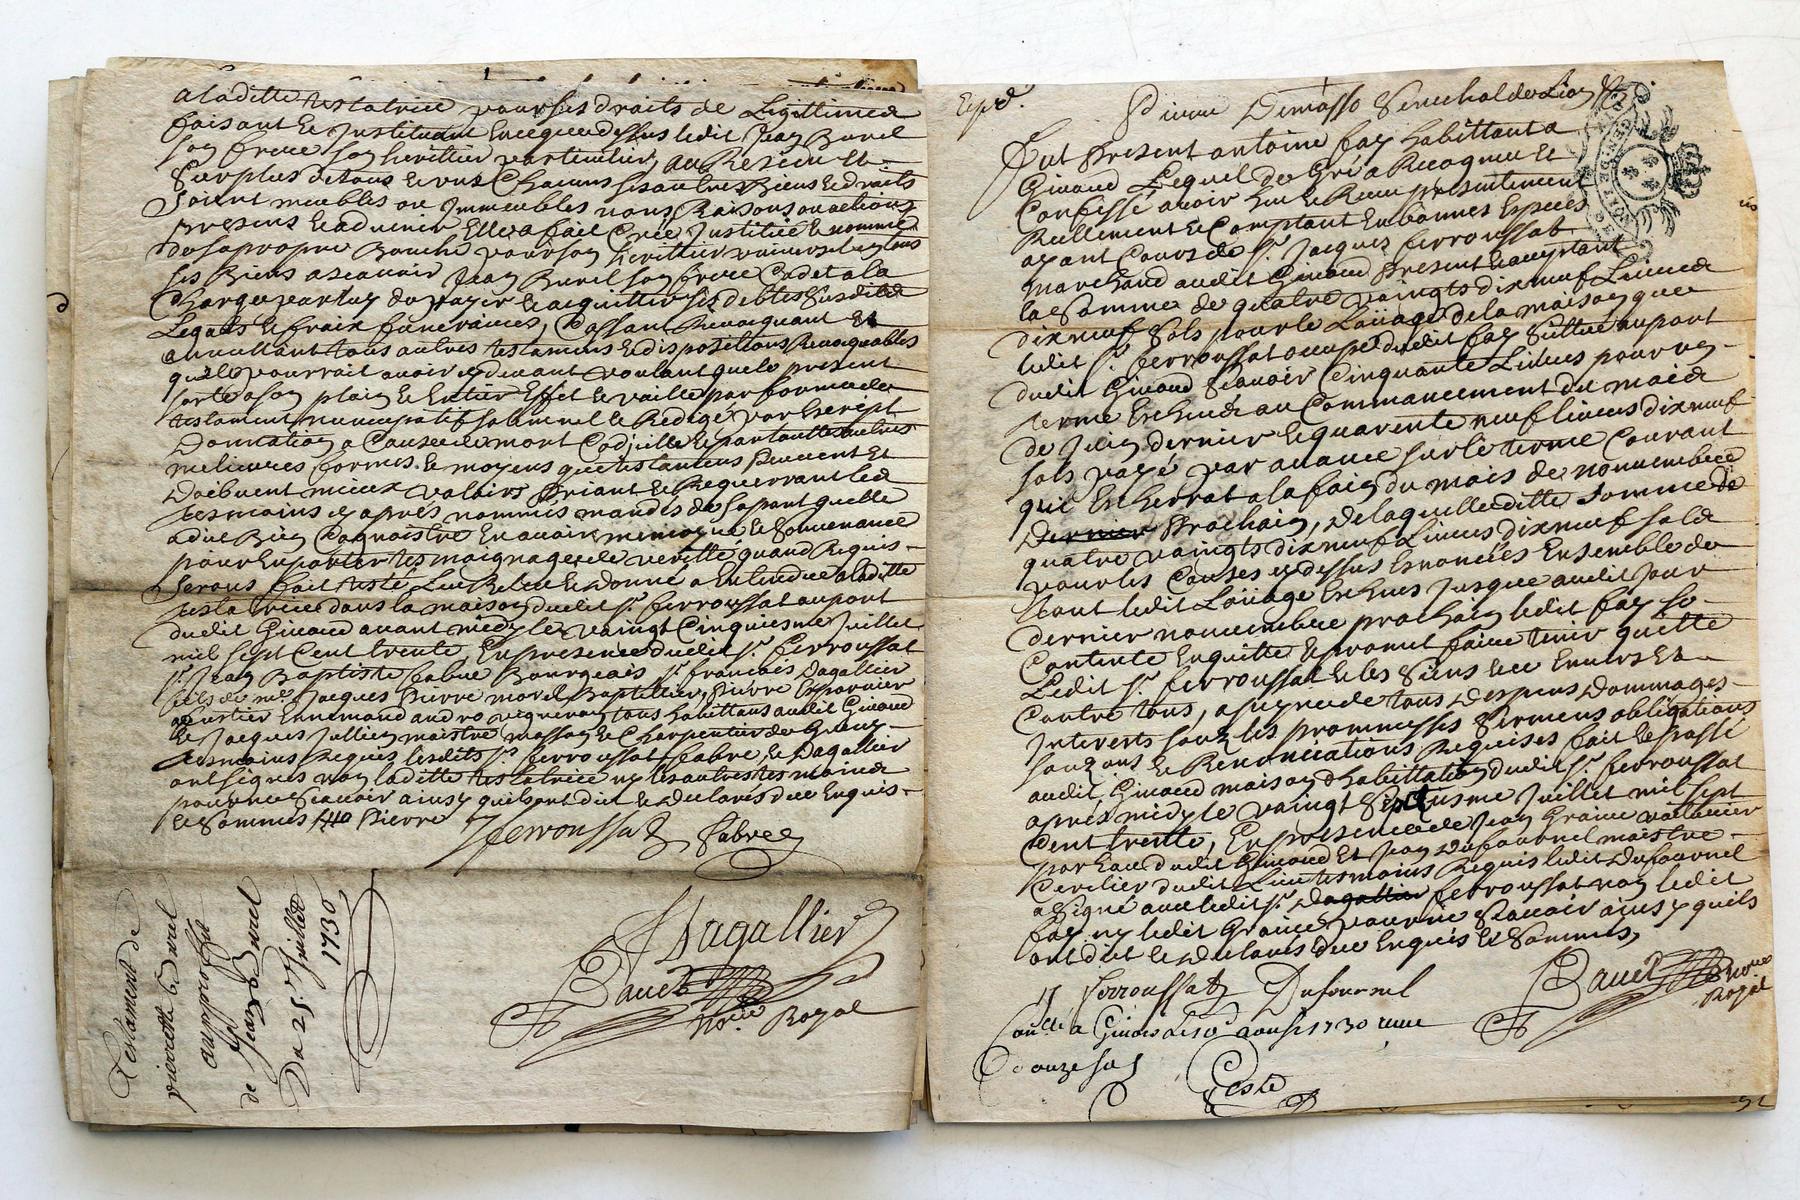 a laditte testatrice pour ses droits de Legittime
faisant & Instituant En ce que dessus ledit Jean Burel
son frere son herittier particulier, au Residu &
Surplus de tous & uns Chacuns ses autres Biens & droits
soient meubles ou Immeubles noms Raisons ou actions
presens & advenir Elle a fait Créé Institué & nommé
de sa propre Bouche pour son herittier universel en tous
ses Biens ascavoir Jean Burel son frere Cadet a la
Charge par luy de payer & acquitter ses debtes susdits
Legats & fraix funeraires, Cassant Revocquant Et
annullant tous autres testamens & dispositions Revocquables
quelle pourrait avoir cy devant voulant que le present
sorte a son plain & Entier Effet & vaille par forme de
testament nuncupatif solemnel & Redigé par Escript
Donnation a Cause de mort Codicille & par touttes autres
melieures formes & moyens que testamens Peuvent Et
doibvent mieux valoirs Priant & Requerrant les
tesmoins cy aprés nommés mandés de sa part quelle
a due Bien Cognoistre En avoir memoire & souvenance
pour En porter tesmoignage de veritté quand Requis
seront fait testé Leu Releu & donné a Entendre a laditte
testatrice dans la maison dudit sr. ferroussat au pont
dudit Givaud avant midy le vaingt Cinquiesme Juillet
mil sept Cent trente, En presence dudit sr. ferroussat
sr. Jean Baptiste fabre Bourgeois sr. francois Dagallier
fils de me. Jacques Pierre morel Pierre
Ennemond andro vigneron tous habittans audit Givaud
& Jacques Jullien maistre masson & Charpentier de
tesmoins Requis lesdits srs. ferroussat fabre, & Dagallier
ont signés non laditte testatrice ny les autres tesmoins
pour ne scavoir ainsy quils ont dit & declarés due Enquis
& Sommés Pierre
Ferroussat Fabre
F Dagallier
Bauet
nore. Royal
Testament de
pierrette Burel
au proffit
de Jean Burel
Du 25e. Juillet
1730
Expé.
Pierre Demasso Senechal de Lion
Fut Present antoine fay habittant a
Givaud Lequel de Gré a Recognu Et
Confessé avoir Eu & Receu presentement
Reellement & Comptant En bonnes Especes
ayant Cours de sr. Jacques ferroussat
marchand audit Givaud Present & acceptant
la somme de quatre vaingts dix neuf Livres
dix neuf sols pour le Loüage de la maison que
ledit sr. ferroussat occupe dudit fay Sittue au pont
dudit Givaud Scavoir Cinquante Livres pour un
terme Escheu au Commancement du mois
de Juin dernier & quarente neuf livres dix neuf
sols payé par avance sur le terme Courant
qui Escherrat a la fain du mois de novembre
Dernier Prochain, de laquelleditte somme de
quatre vaingts dix neuf Livres dix neuf sols
pour les Causes cy dessus Enoncées Ensemble de
tout ledit Loüage Escheus Jusque audit Jour
dernier novembre prochain ledit fay se
Contente En quitte & promet faire tenir quitte
Ledit sr. ferroussat & les Siens Envers Et
Contre tous, a peyne de tous despens dommages
Interests sous les prommesses sermens obligations
& Renonciations Requises fait & passé
audit Givaud maison d'habittation dudit sr. ferroussat
aprés midy le vaingt Septiesme Juillet mil sept
Cent trente, En presence de Jean
dudit Givaud Et Jean Dufournel maistre
dudit Lieu tesmoins Requis ledit Dufournel
a Signé avec ledit sr. Dagallier ferroussat non ledit
fay ny ledit pour ne Scavoir ainsy quils
ont dit & declarés due Enquis & Sommés,
J Ferroussat Dufournel
Bauet nore
Royal
a Givors Le aoust 1730
douze sols